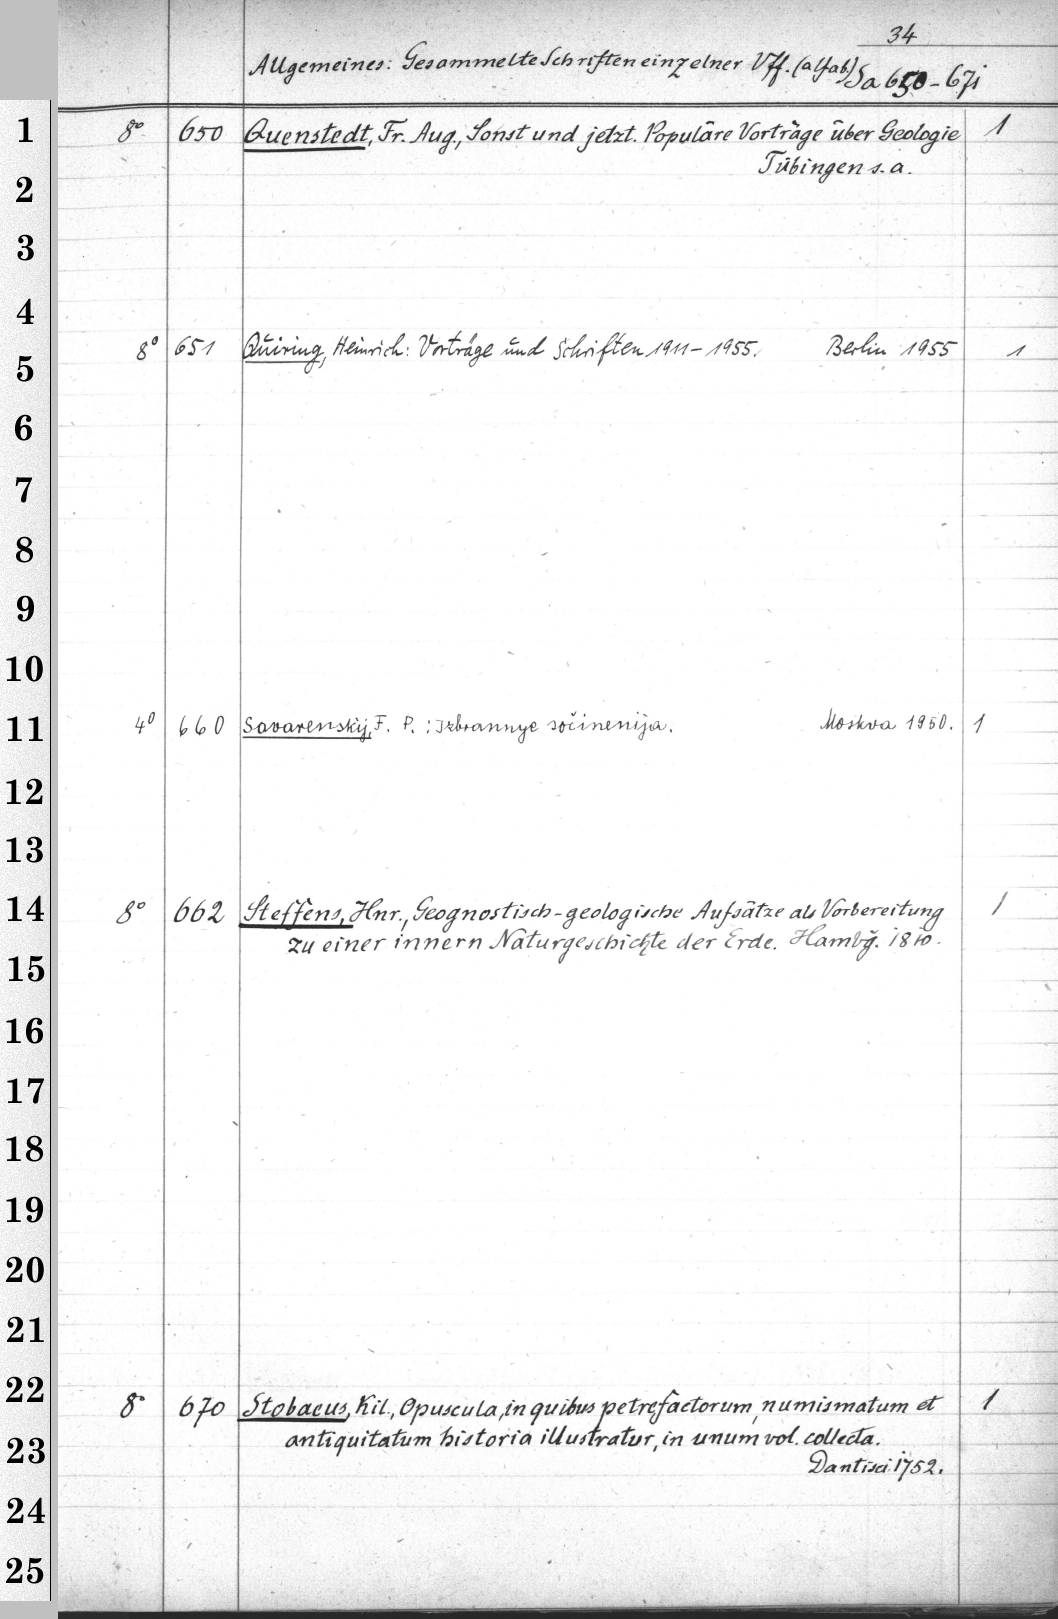 34
Allgemeines: Gesammelte Schriften einzelner Vff. (alfab.) Sa 650-671
1 8° 650 Quenstedt, Fr. Aug., Sonst und jetzt. Populäre Vorträge über Geologie 1
Tübingen s. a.
2
3
4
8° 651 Quiring, Heinrich: Vorträge und Schriften 1911-1955. Berlin 1955 1
5
6
7
8
9
10
11 4° 660 Savarenskij, F. P.: Izbrannye sočinenija. Moskva 1950. 1
12
13
14 8° 662 Steffens, Hnr., Geognostisch-geologische Aufsätze als Vorbereitung 1
zu einer innern Naturgeschichte der Erde. Hambg. 1810.
15
16
17
18
19
20
21
22 8° 670 Stobaeus, Kil., Opuscula, in quibus petrefactorum, numismatum et 1
antiquitatum historia illustratur, in unum vol. collecta.
23
Dantisci 1752.
24
25